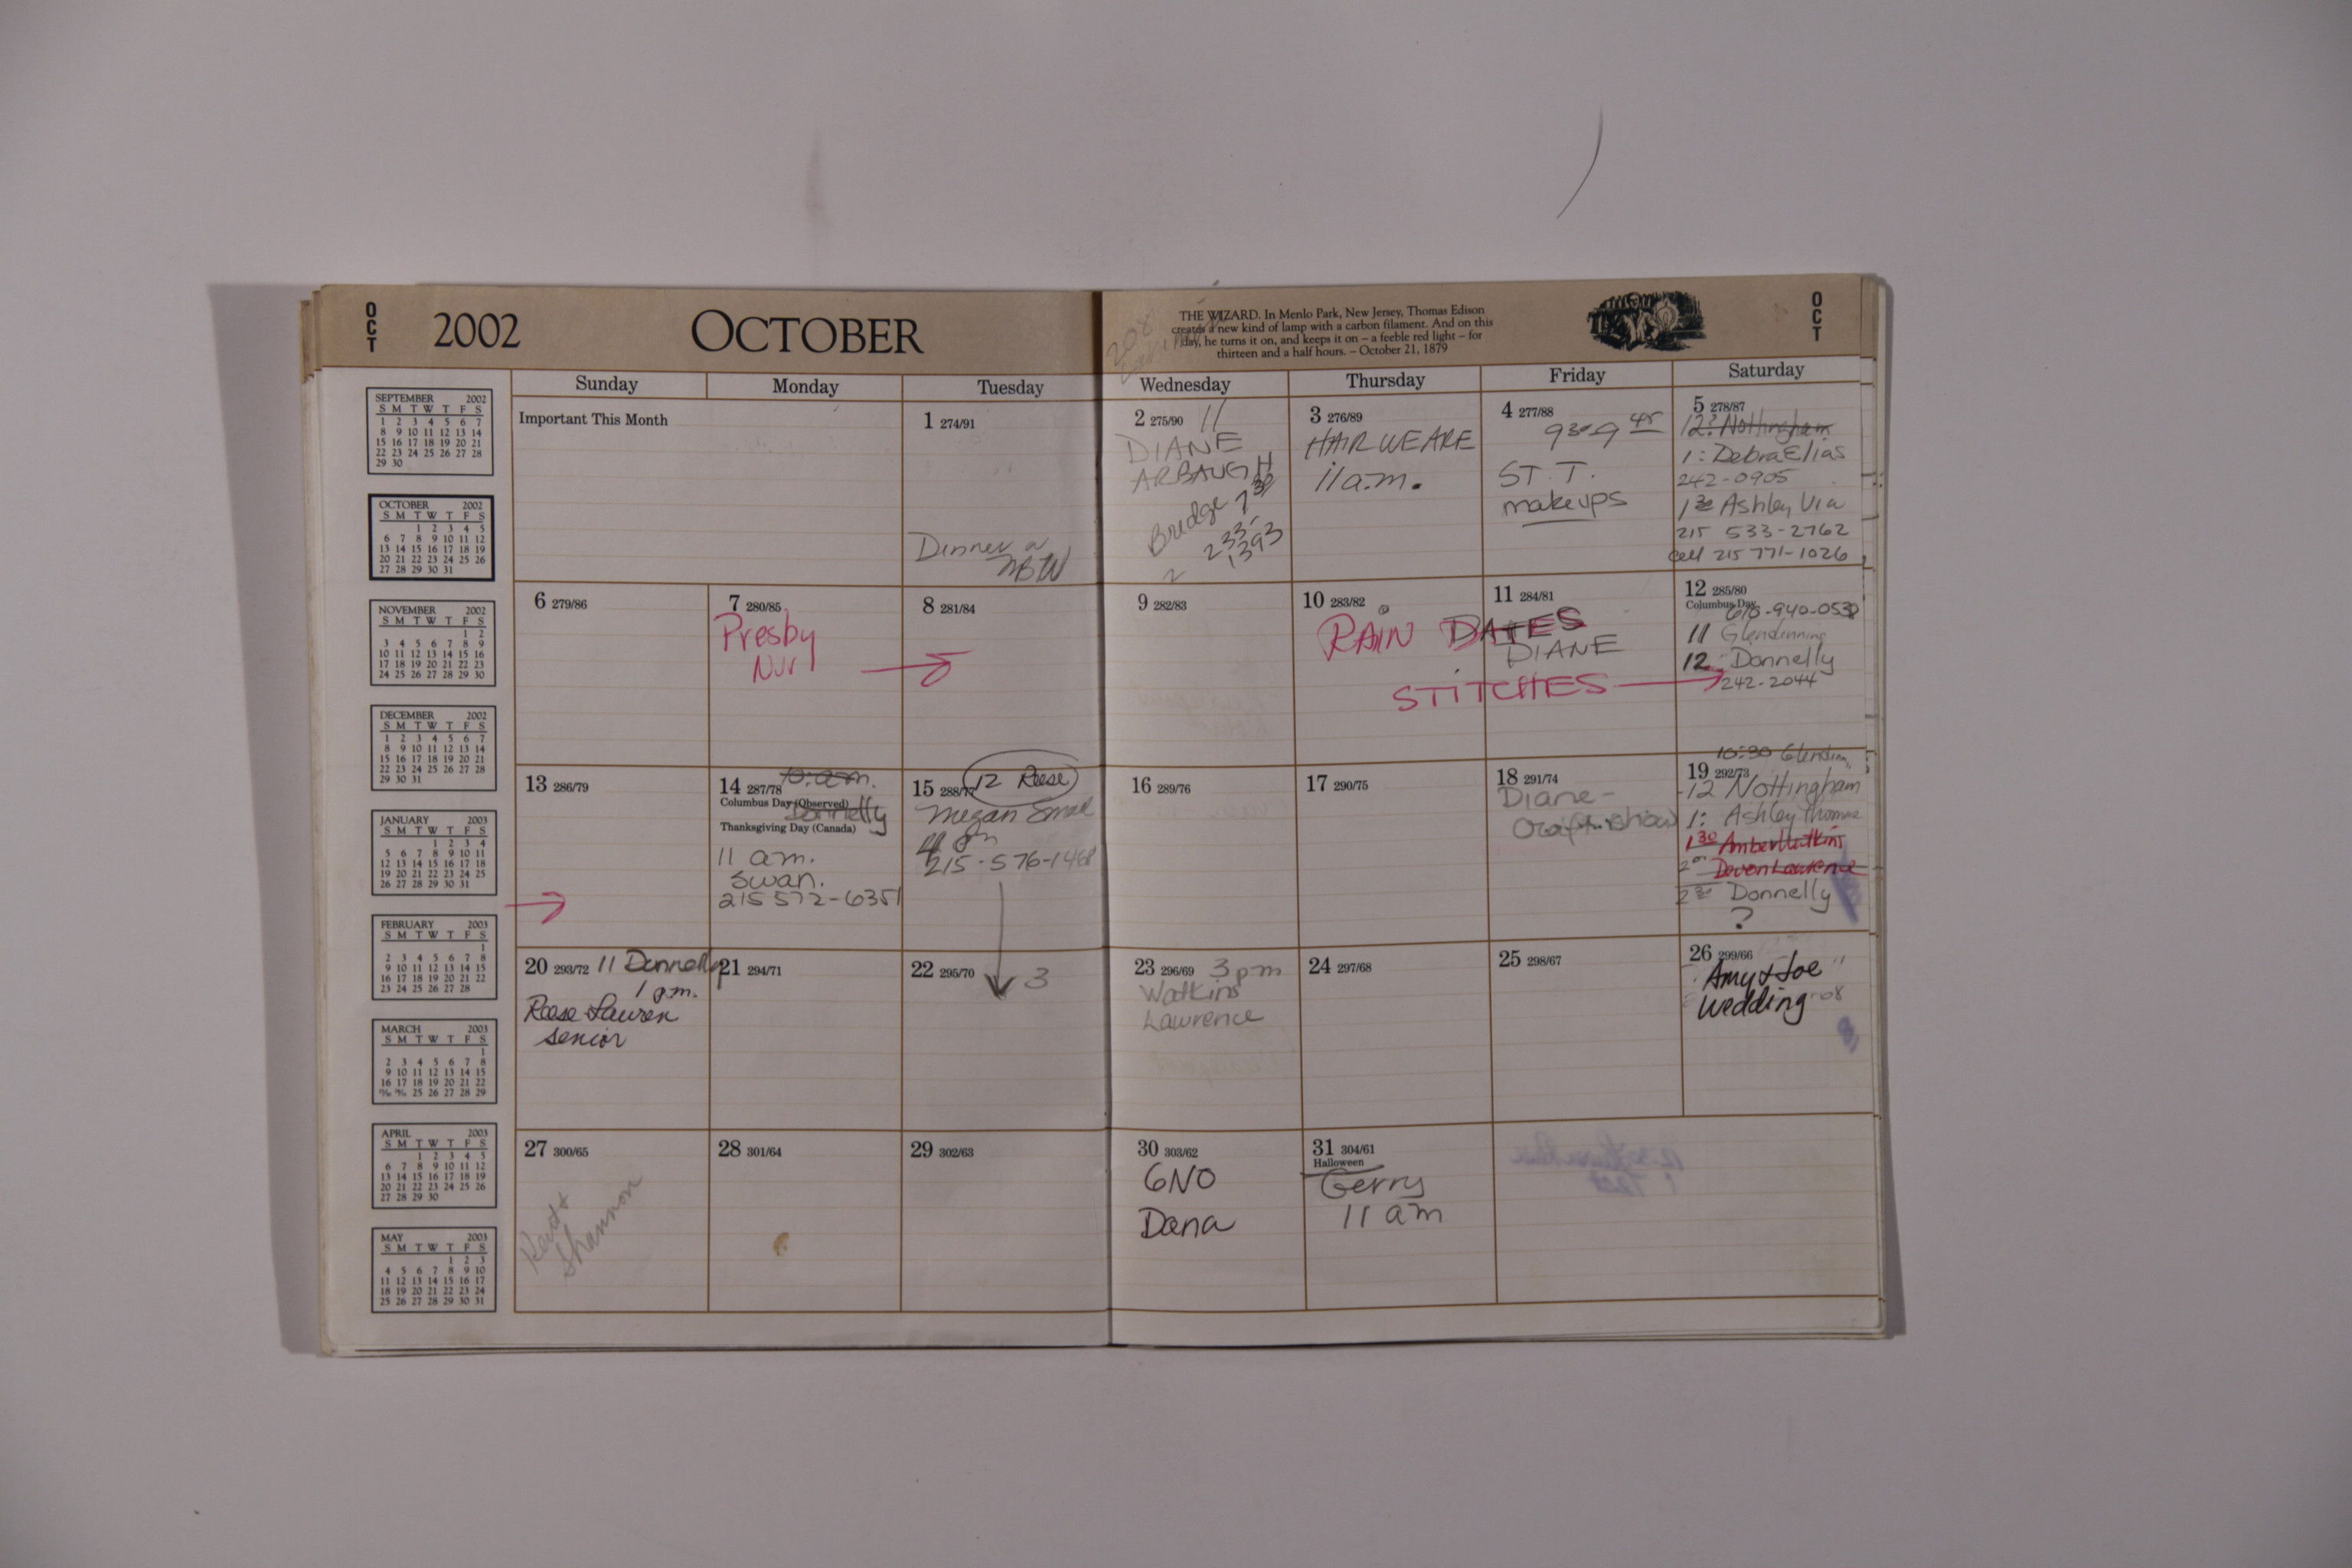 OCT
2002
OCTOBER
THE WIZARD. In Menlo Park, New Jersey, Thomas Edison
creates a new kind of lamp with a carbon filament. And on this
day, he turns it on, and keeps it on – a feeble red light – for
thirteen and a half hours. – October 21, 1879
OCT
Sunday Monday Tuesday Wednesday Thursday Friday Saturday
Important This Month
1 274/91
Dinner
2 275/90 11
DIANE
ARBAUGH
Bridge 7 30
233-
1393
3 276/89
HAIR WE ARE
11 a.m.
4 277/88
9 30-9 45
ST. T.
makeups
5 278/87
12: Nottingham
1: Debra Elias
242-0905
1 30 Ashley Via
215 533-2762
cell 215 771-1026
6 279/86
7 280/85
Presby
8 281/84
9 282/83
10 283/82
RAIN DATES
STITCHES
11 284/81
DIANE
12 285/80
Columbus Day
610-940-0532
11 Glendinning
12 Donnelly
242-2044
13 286/79
14 287/78
10: a.m.
Columbus Day (Observed)
Donnelly
Thanksgiving Day (Canada)
11 a.m.
Swan.
215 572-6351
15 288/77
12 Reese
Megan
4 pm
215-576-1468
16 289/76
17 290/75
18 291/74
Diane-
Craft show
10:30 Glendin
19 292/73
12 Nottingham
1: Ashley Thomas
1 30 Amber Watkins
2 00 Devon Lawrence
2 30 Donnelly
?
20 293/72 11 Donnelly
1 pm.
Reese Lauren
senior
21 294/71
22 295/70
3
23 296/69 3 pm
Watkins
Lawrence
24 297/68
25 298/67
26 299/66
Amy & Joe
Wedding
27 300/65
Shannon
28 301/64
29 302/63
30 303/62
GNO
Dana
31 304/61
Halloween
Gerry
11 am
SEPTEMBER 2002
S M T W T F S
1 2 3 4 5 6 7
8 9 10 11 12 13 14
15 16 17 18 19 20 21
22 23 24 25 26 27 28
29 30
OCTOBER 2002
S M T W T F S
1 2 3 4 5
6 7 8 9 10 11 12
13 14 15 16 17 18 19
20 21 22 23 24 25 26
27 28 29 30 31
NOVEMBER 2002
S M T W T F S
1 2
3 4 5 6 7 8 9
10 11 12 13 14 15 16
17 18 19 20 21 22 23
24 25 26 27 28 29 30
DECEMBER 2002
S M T W T F S
1 2 3 4 5 6 7
8 9 10 11 12 13 14
15 16 17 18 19 20 21
22 23 24 25 26 27 28
29 30 31
JANUARY 2003
S M T W T F S
1 2 3 4
5 6 7 8 9 10 11
12 13 14 15 16 17 18
19 20 21 22 23 24 25
26 27 28 29 30 31
FEBRUARY 2003
S M T W T F S
1
2 3 4 5 6 7 8
9 10 11 12 13 14 15
16 17 18 19 20 21 22
23 24 25 26 27 28
MARCH 2003
S M T W T F S
1
2 3 4 5 6 7 8
9 10 11 12 13 14 15
16 17 18 19 20 21 22
23/30 24/31 25 26 27 28 29
APRIL 2003
S M T W T F S
1 2 3 4 5
6 7 8 9 10 11 12
13 14 15 16 17 18 19
20 21 22 23 24 25 26
27 28 29 30
MAY 2003
S M T W T F S
1 2 3
4 5 6 7 8 9 10
11 12 13 14 15 16 17
18 19 20 21 22 23 24
25 26 27 28 29 30 31